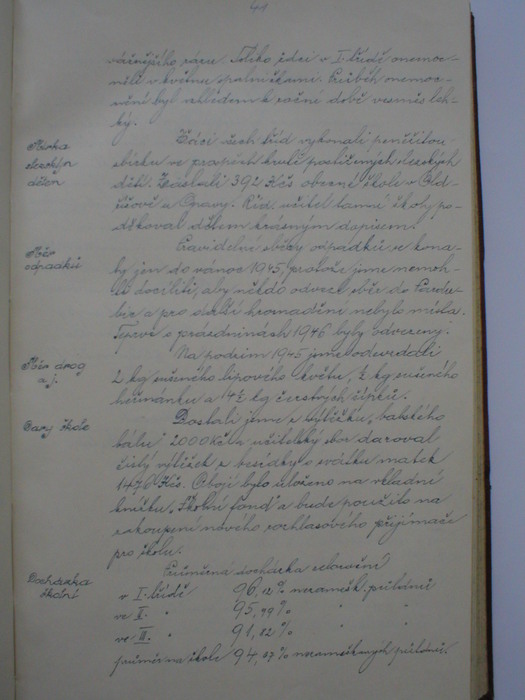 41
vážnějšího rázu. Toliko žáci v I. třídě onemoc-
něli v květnu spalničkami. Průběh onemoc-
nění byl vzhledem k roční době vesměs leh-
ký.
Sbírka
slezským
dětem
Žáci všech tříd vykonali peněžitou
sbírku ve prospěch krutě postižených slezských
dětí. Zaslali 392 Kčs obecné škole v Old-
řišově u Opavy. Říd. učitel tamní školy po-
děkoval dětem krásným dopisem.
Sběr
odpadků
Pravidelné sběry odpadků se kona-
ly jen do vánoc 1945, protože jsme nemoh-
li docíliti, aby někdo odvezl sběr do Pardu-
bic a pro další hromadění nebylo místa.
Teprve o prázdninách 1946 byly odvezeny.
Sběr drog
a j.
Na podzim 1945 jsme odevzdali
2 kg sušeného lipového květu, ½ kg sušeného
heřmánku a 14½ kg čerstvých šípků.
Dary škole
Dostali jsme z výtěžku
bálu 2000 Kčs a učitelský sbor daroval
čistý výtěžek z besídky o svátku matek
1476 Kčs. Obojí bylo uloženo na vkladní
knížku „Školní fond" a bude použito na
zakoupení nového rozhlasového přijímače
pro školu.
Docházka
školní
Průměrná docházka celoroční
v I. třídě 96,12% nezamešk. půldnů
ve II. " 95,99% " "
ve III. " 91,82% " "
průměr na škole 94,57% nezameškaných půldnů.